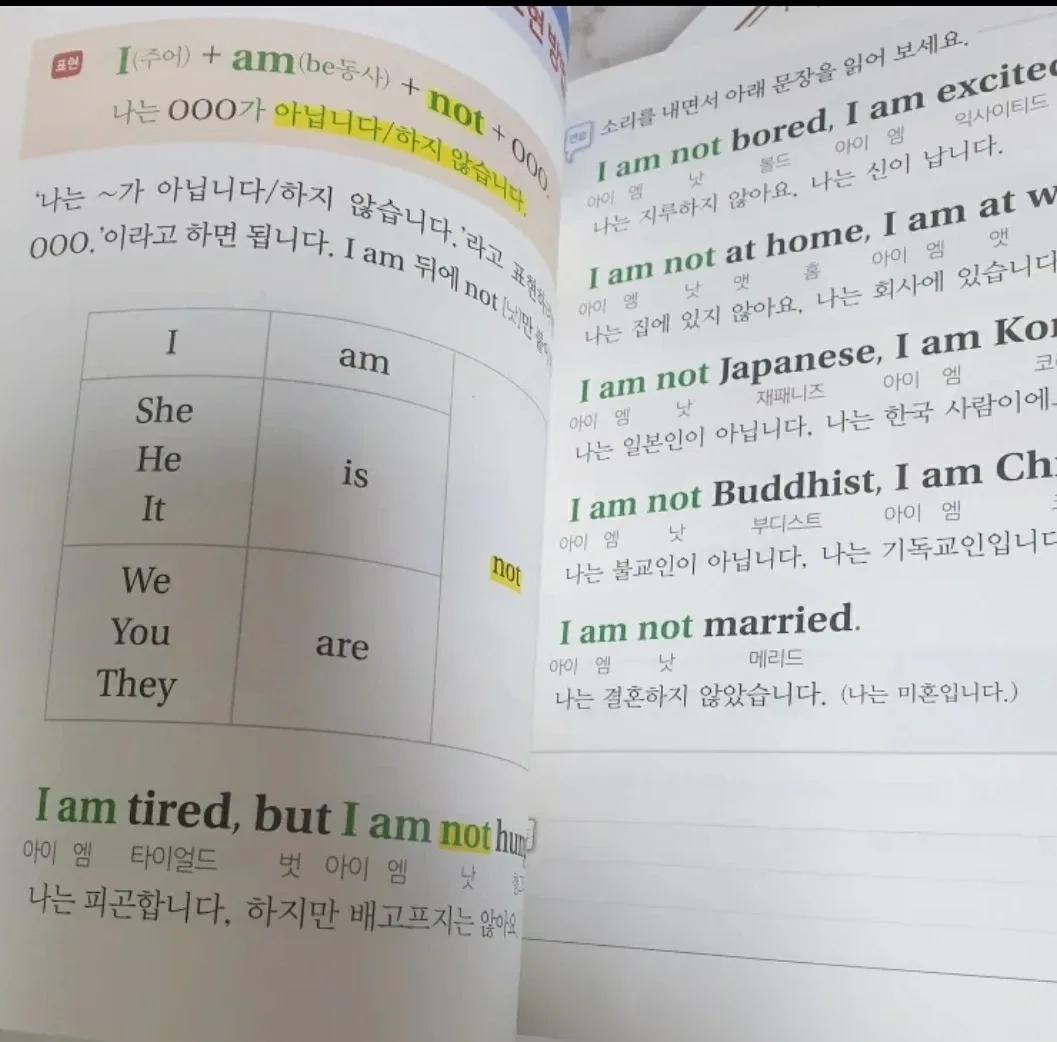 표현
I(주어) + am(be동사) + not + OOO.
나는 OOO가 아닙니다/하지 않습니다.
'나는 ~가 아닙니다/하지 않습니다.'라고
OOO.'이라고 하면 됩니다. I am 뒤에 not [낫]만
I am
She
He is
It
not
We
You are
They
I am tired, but I am not
아이 엠 타이얼드 벗 아이 엠 낫
나는 피곤합니다, 하지만 배고프지는 않아요
연습 소리를 내면서 아래 문장을 읽어 보세요.
I am not bored, I am excited
아이 엠 낫 볼드 아이 엠 익사이티드
나는 지루하지 않아요, 나는 신이 납니다.
I am not at home, I am at
아이 엠 낫 앳 홈 아이 엠 앳
나는 집에 있지 않아요, 나는 회사에 있습니다
I am not Japanese, I am
아이 엠 낫 재패니즈 아이 엠
나는 일본인이 아닙니다. 나는 한국 사람이에
I am not Buddhist, I am
아이 엠 낫 부디스트 아이 엠
나는 불교인이 아닙니다, 나는 기독교인입니다
I am not married.
아이 엠 낫 메리드
나는 결혼하지 않았습니다. (나는 미혼입니다.)